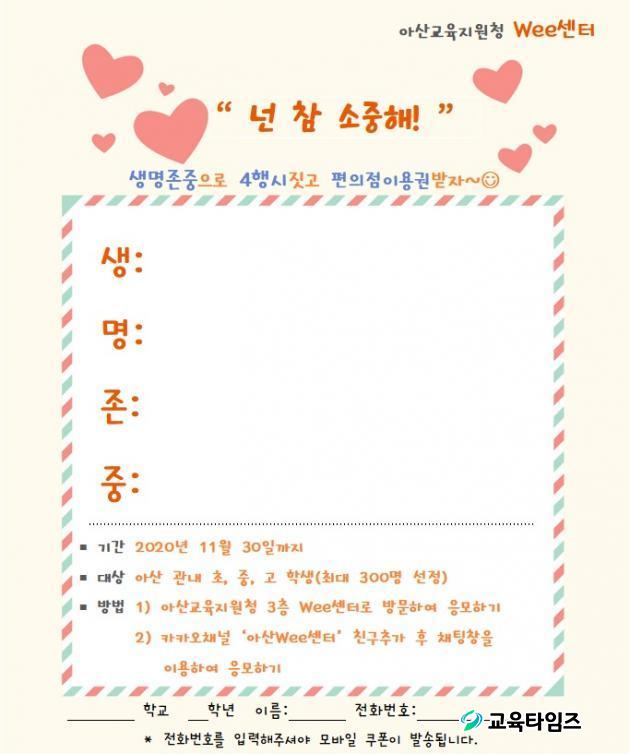 아산교육지원청 Wee센터
“ 넌 참 소중해! ”
생명존중으로 4행시짓고 편의점이용권받자~☺
생:
명:
존:
중:
▪ 기간 2020년 11월 30일까지
▪ 대상 아산 관내 초, 중, 고 학생(최대 300명 선정)
▪ 방법 1) 아산교육지원청 3층 Wee센터로 방문하여 응모하기
2) 카카오채널 ‘아산Wee센터’ 친구추가 후 채팅창을
이용하여 응모하기
________ 학교 __학년 이름:_______ 전화번호:________
교육타임즈
* 전화번호를 입력해주셔야 모바일 쿠폰이 발송됩니다.